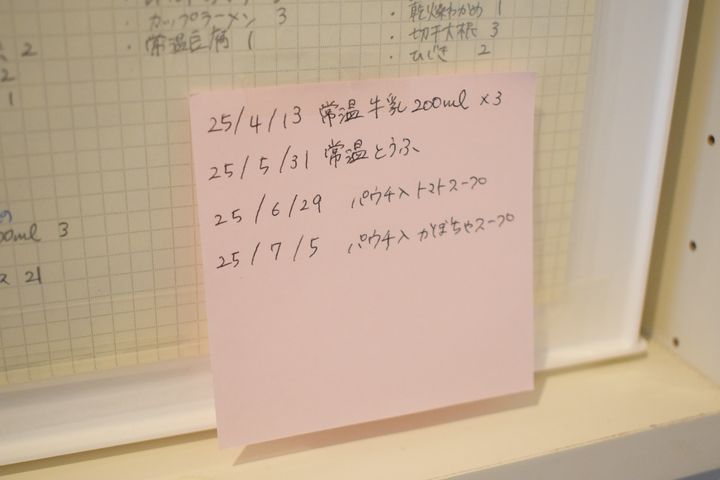 カップラーメン 3
・常温豆腐 1
・乾燥わかめ 1
・切干大根 3
・ひじき 2
2
2
1
25/4/13 常温牛乳200ml×3
25/5/31 常温とうふ
25/6/29 パウチ入トマトスープ
25/7/5 パウチ入かぼちゃスープ
の
00ml 3
ス 21